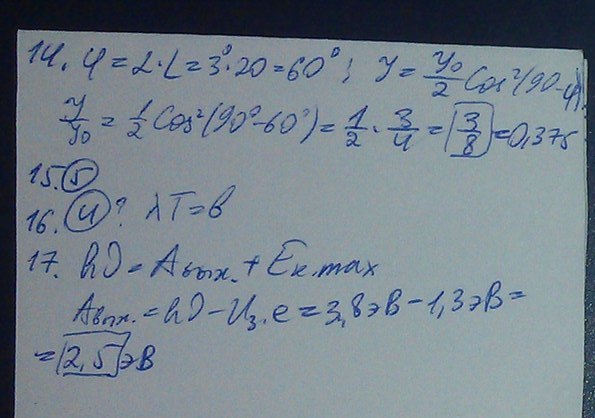 14. φ = α·L = 3°·20 = 60°; J = J₀/2 Cos²(90-φ)
J/J₀ = 1/2 Cos²(90°-60°) = 1/2 · 3/4 = 3/8 = 0,375
15. 5
16. 4? λT = в
17. hν = Aвых. + Eк.max
Aвых. = hν - Uз.e = 3,8эВ - 1,3эВ =
= 2,5 эВ